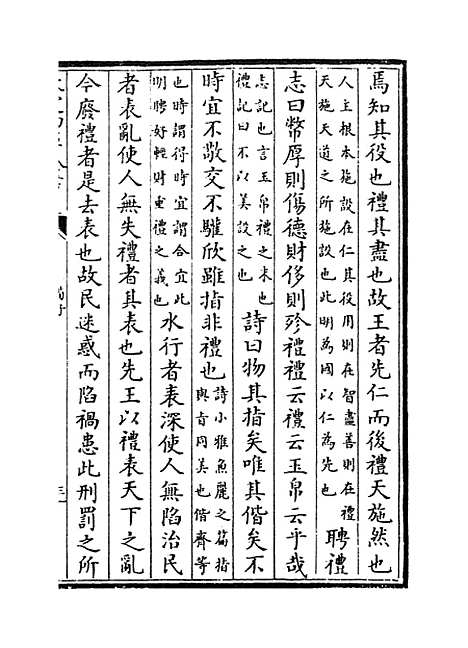 焉知其役也禮其盡也故王者先仁而後禮天施然也
人主根本施設在仁其役用則在智盡善則在禮
天施天道之所施設也此明為國以仁為先也
聘禮
志曰幣厚則傷德財侈則殄禮禮云禮云玉帛云乎哉
志記也言玉帛禮之末也
禮記曰不以美設之也
詩曰物其指矣唯其偕矣不
時宜不敬交不驩欣雖指非禮也
詩小雅魚麗之篇指
與旨同美也偕齊等
也時謂得時宜謂合宜此
明聘好輕財重禮之義也
水行者表深使人無陷治民
者表亂使人無失禮者其表也先王以禮表天下之亂
今廢禮者是去表也故民迷惑而陷禍患此刑罰之所